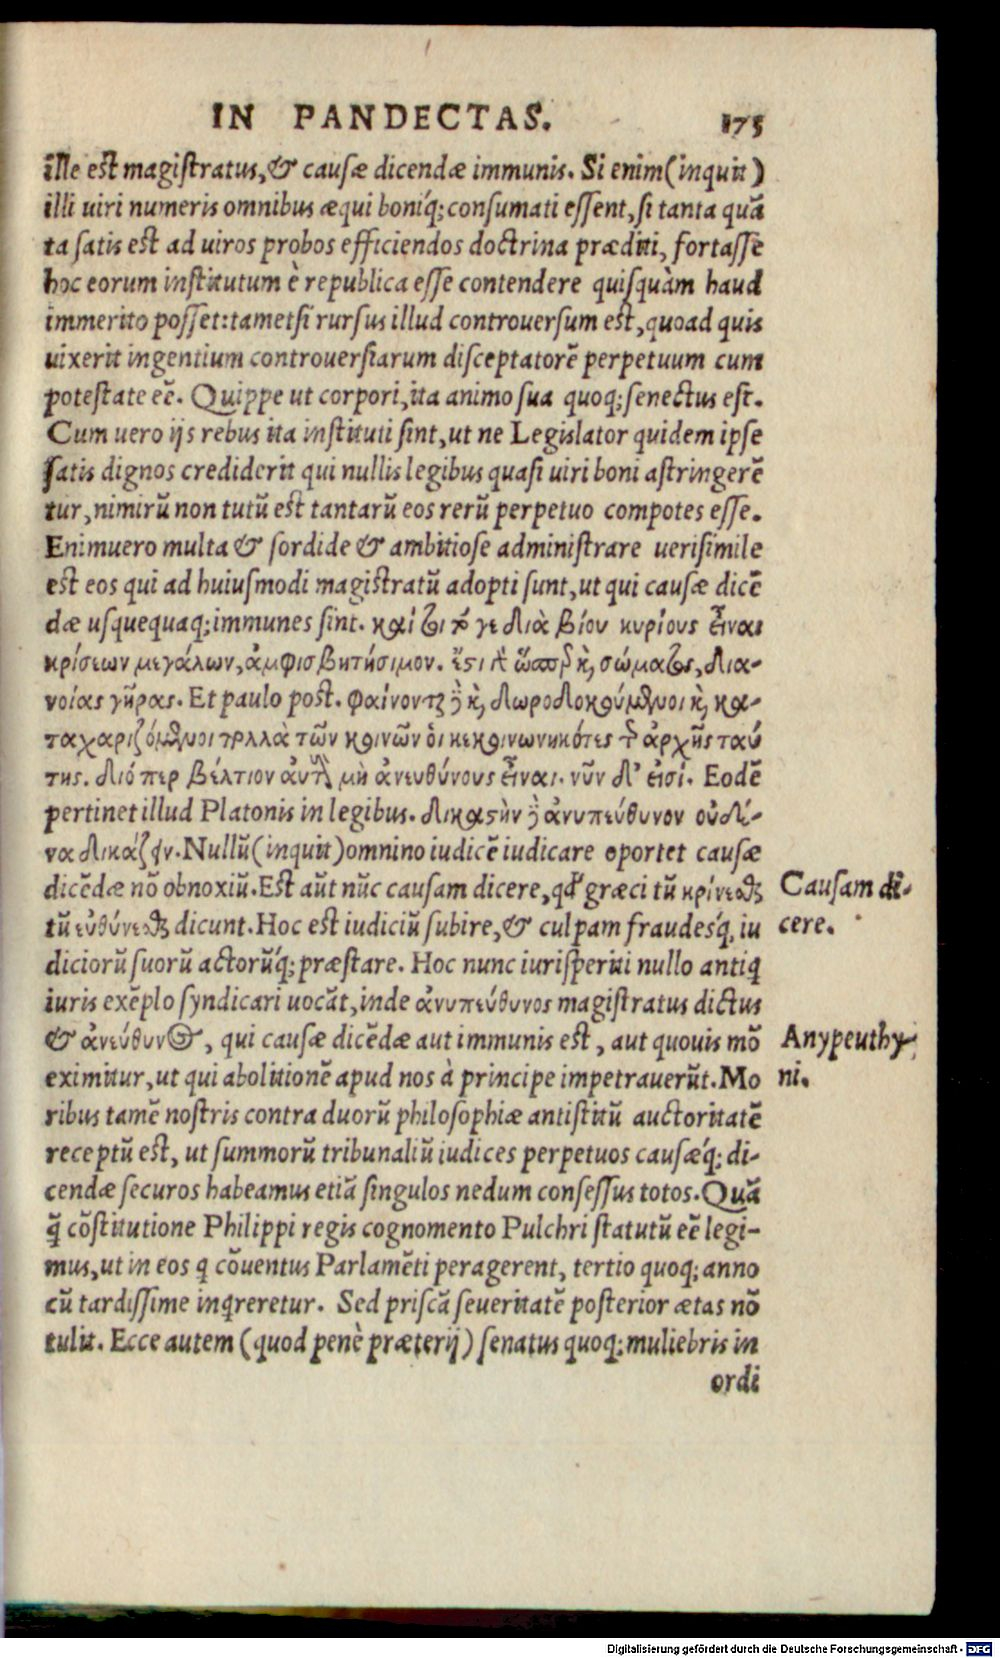 IN PANDECTAS. 175
ille est magistratus, & causæ dicendæ immunis. Si enim (inquit)
illi uiri numeris omnibus æqui boniq́; consumati essent, si tanta quã
ta satis est ad uiros probos efficiendos doctrina præditi, fortasse
hoc eorum institutum è republica esse contendere quisquàm haud
immerito posset: tametsi rursus illud controuersum est, quoad quis
uixerit ingentium controuersiarum disceptatorẽ perpetuum cum
potestate eẽ. Quippe ut corpori, ita animo sua quoq; senectus est.
Cum uero ijs rebus ita instituti sint, ut ne Legislator quidem ipse
satis dignos crediderit qui nullis legibus quasi uiri boni astringerẽ
tur, nimirũ non tutũ est tantarũ eos rerũ perpetuo compotes esse.
Enimuero multa & sordide & ambitiose administrare uerisimile
est eos qui ad huiusmodi magistratũ adopti sunt, ut qui causæ dicẽ
dæ usquequaq; immunes sint. καίτοι τό γε διὰ βίου κυρίους εἶναι
κρίσεων μεγάλων, ἀμφισβητήσιμον. ἔστι γὰρ ὥσπερ καὶ σώματος, δια-
νοίας γῆρας. Et paulo post. φαίνονται δὲ καὶ δωροδοκούμενοι καὶ κα-
ταχαριζόμενοι πολλὰ τῶν κοινῶν οἱ κεκοινωνηκότες τῆς ἀρχῆς ταύ
της. διό περ βέλτιον αὐτοὺς μὴ ἀνευθύνους εἶναι. νῦν δ' εἰσί. Eodẽ
pertinet illud Platonis in legibus. δικαστὴν δὲ ἀνυπεύθυνον οὐδέ-
να δικάζειν. Nullũ (inquit) omnino iudicẽ iudicare oportet causæ
dicẽdæ nõ obnoxiũ. Est aũt nũc causam dicere, qđ græci tũ κρίνεσθαι
tũ εὐθύνεσθαι dicunt. Hoc est iudiciũ subire, & culpam fraudesq́, iu
diciorũ suorũ actorũq́; præstare. Hoc nunc iurisperiti nullo antiq
iuris exẽplo syndicari uocãt, inde ἀνυπεύθυνος magistratus dictus
& ἀνεύθυνος, qui causæ dicẽdæ aut immunis est, aut quouis mõ
eximitur, ut qui abolitionẽ apud nos à principe impetrauerũt. Mo
ribus tamẽ nostris contra duorũ philosophiæ antistitũ auctoritatẽ
receptũ est, ut summorũ tribunaliũ iudices perpetuos causæq́; di-
cendæ securos habeamus etiã singulos nedum consessus totos. Quã
q̃ cõstitutione Philippi regis cognomento Pulchri statutũ eẽ legi-
mus, ut in eos q cõuentus Parlamẽti peragerent, tertio quoq; anno
cũ tardissime inqreretur. Sed priscã seueritatẽ posterior ætas nõ
tulit. Ecce autem (quod penè præterij) senatus quoq; muliebris in
ordi
Causam di-
cere.
Anypeuthy-
ni.
Digitalisierung gefördert durch die Deutsche Forschungsgemeinschaft - DFG